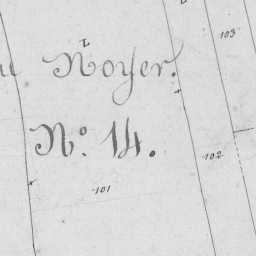 103
u Noyer.
No. 14.
102
101